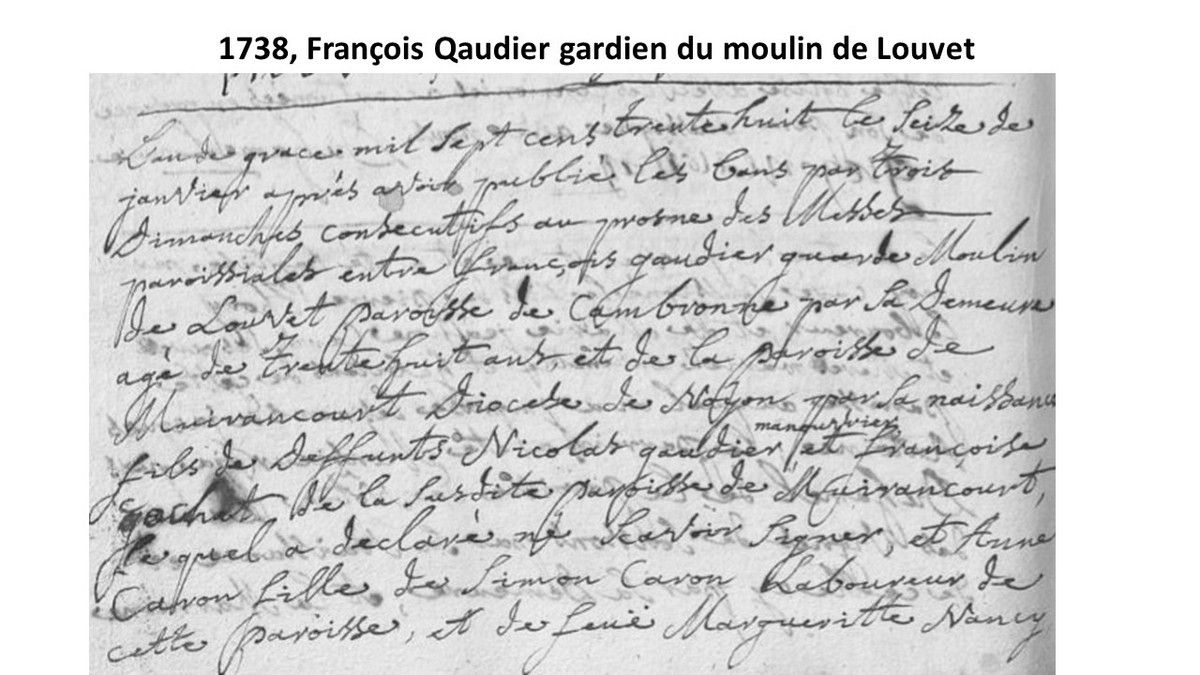 1738, François Qaudier gardien du moulin de Louvet
L'an de grace mil Sept cens trente huit le Seize de
janvier aprés avoir publié les bans par trois
Dimanches consecutifs au prosne des Messes
paroissiales entre françois gaudier guarde Moulin
de Louvet paroisse de Cambronne par sa demeure
agé de trente huit ans, et de la paroisse de
Muirancourt Diocese de Noyon par sa naissance
fils de deffunts Nicolas gaudier manouvrier et françoise
gochet de la susdite paroisse de Muirancourt,
le quel a declaré né scavoir signer, et Anne
Caron fille de Simon Caron Laboureur de
cette paroisse, et de feuë Margueritte Nancy